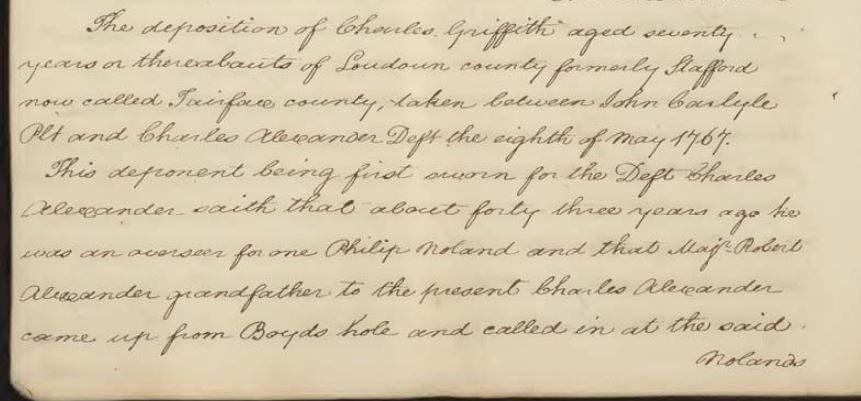 The deposition of Charles Griffith aged seventy
years or thereabouts of Loudoun county formerly Stafford
now called Fairfax county, taken between John Carlyle
Plt and Charles Alexander Deft the eighth of May 1767.
This deponent being first sworn for the Deft Charles
Alexander saith that about forty three years ago he
was an overseer for one Philip Noland and that Majr. Robert
Alexander grandfather to the present Charles Alexander
came up from Boyds hole and called in at the said
Nolands